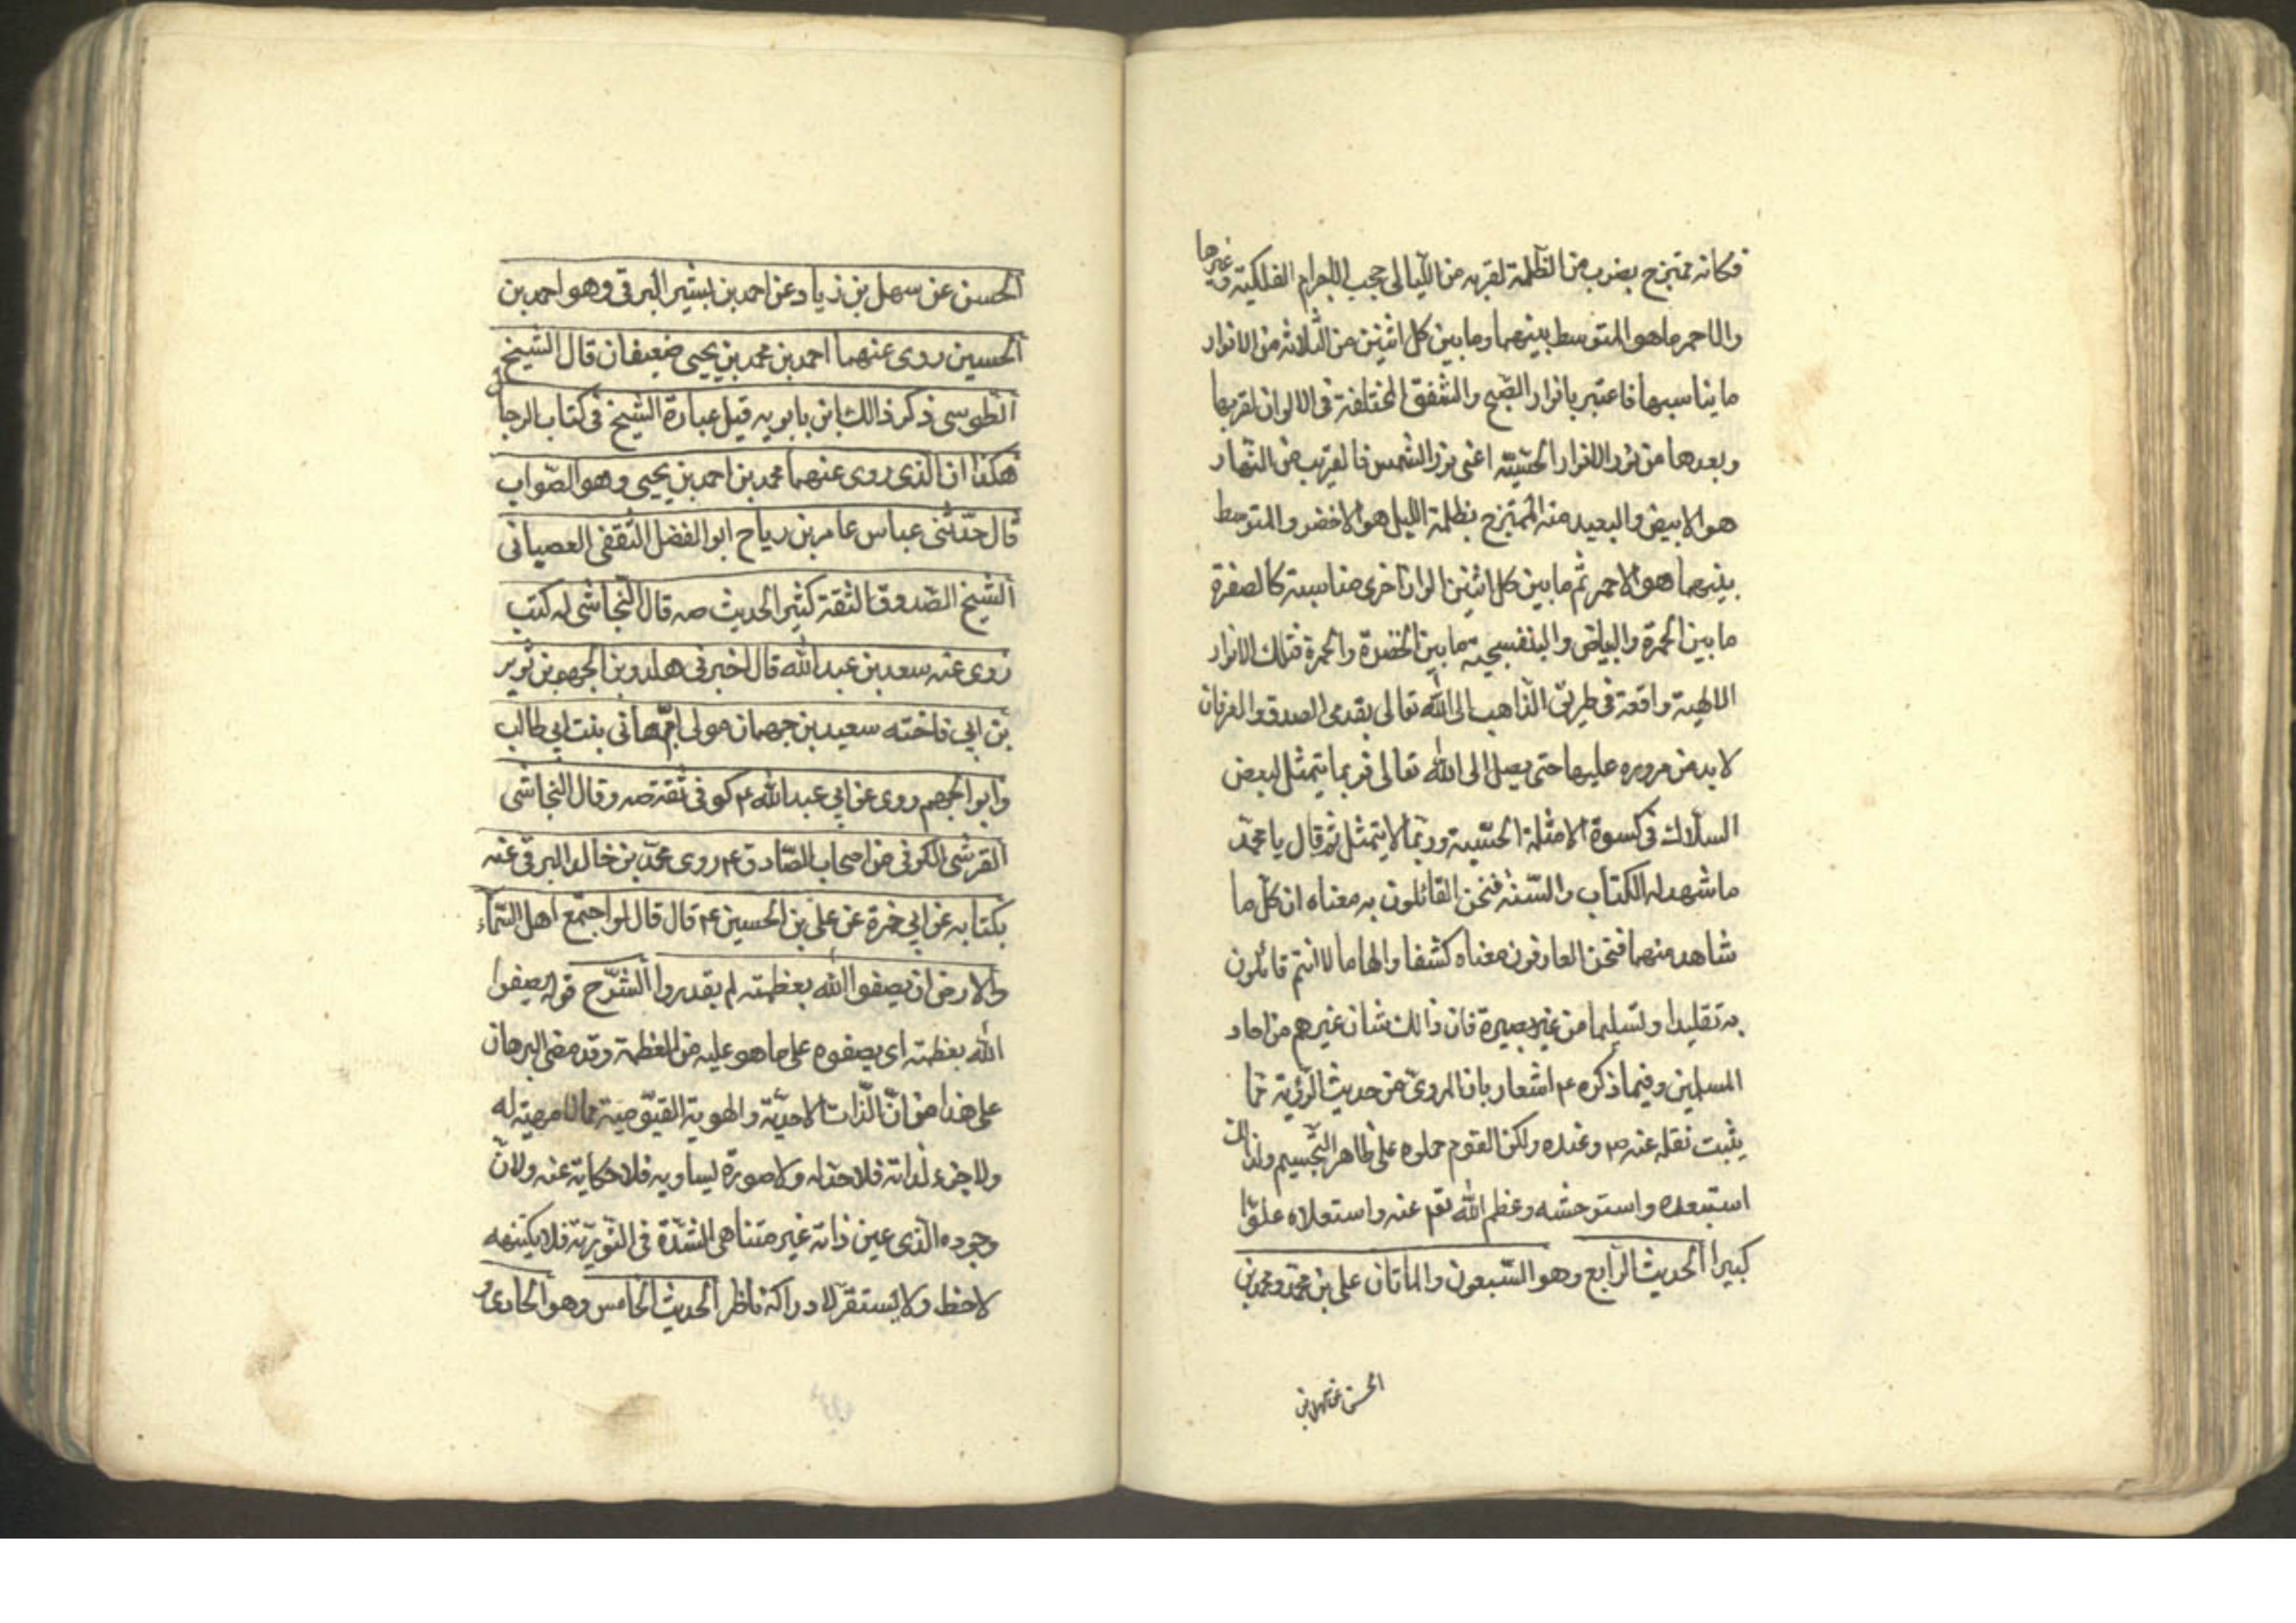 فكانه ممتزج بضرب من الظلمة لقربه من الليالى حجب الاجرام الفلكية و غيرها
والاحمر ما هو المتوسط بينهما وما بين كل اثنين من الثلاثة من الانوار
ما يناسبها فاعتبر بانوار الصبح والشفق المختلفة فى الالوان لقربها
وبعدها من نور الانوار الحسيّة اعنى نور الشمس فالقريب من النهار
هو الابيض والبعيد منه الممتزج بظلمة الليل هو الاخضر والمتوسط
بينهما هو الاحمر ثم ما بين كل اثنين الوان اخرى مناسبة كالصفرة
ما بين الحمرة والبياض والبنفسجية ما بين الخضرة والحمرة فتلك الانوار
الالهية واقعة فى طريق الذاهب الى الله تعالى بقدمى الصدق والعرفان
لا بد من مروره عليها حتى يصل الى الله تعالى فربما يتمثل لبعض
السلاك فى كسوة الامثلة الحسّية وربّما لا يتمثل ثم قال يا محمّد
ما شهد له الكتاب والسّنة فنحن القائلون به معناه ان كلّ ما
شاهد منهما فنحن العارفون معناه كشفا والهاما لا انتم قائلون
به تقليدا وتسليما من غير بصيرة فان ذالك شان غيرهم من احاد
المسلمين وفيما ذكره ع اشعار بان المروىّ من حديث الرّؤية ممّا
يثبت نقله عنه ص وعنده ولكن القوم حملوه على ظاهر التّجسيم ولذالك
استبعده واستوحشه وعظم الله تعم عنه واستعلاه علوّا
كبيرا الحديث الرّابع وهو السّبعون والماتان على بن محمّد ومحمد بن
الحسن عن سهل بن
الحسن عن سهل بن زياد عن احمد بن بشير البرقى وهو احمد بن
الحسين روى عنهما احمد بن محمد بن يحيى ضعيفان قال الشيخ
الطوسى ذكر ذالك ابن بابويه قيل عبارة الشيخ فى كتاب الرجال
هكذا ان الذى روى عنهما محمد بن احمد بن يحيى وهو الصّواب
قال حدّثنى عباس عامر بن رياح ابو الفضل الثقفى العصيانى
الشيخ الصّدوق الثقة كثير الحديث صه قال النجاشى له كتب
روى عنه سعد بن عبد الله قال اخبرنى هارون بن الجهم بن ثوير
بن ابى فاخته سعيد بن جهمان مولى امّ هانى بنت ابى طالب
وابو الجهم روى عن ابى عبد الله ع كوفى ثقة صه وقال النجاشى
القرشى الكوفى من اصحاب الصّادق ع روى محمّد بن خالد البرقى عنه
بكتابه عن ابى حمزة عن على بن الحسين ع قال قال لو اجتمع اهل السّماء
والارض ان يصفوا الله بعظمته لم يقدروا الشّرح قوله يصفوا
الله بعظمته اى يصفوه على ما هو عليه من العظمة وقد مضى البرهان
على هذا من انّ الذّات الاحديّة والهوية القيّومية ممّا لا مهية له
ولا جزء لذاته فلا حدّ له ولا صورة يساويه فلا حكاية عنه ولانّ
وجوده الّذى عين ذاته غير متناهى الشدّة فى النّوريّة فلا يكتنهه
لاحظ ولا يستقرّ لادراكه ناظر الحديث الخامس وهو الحادى و